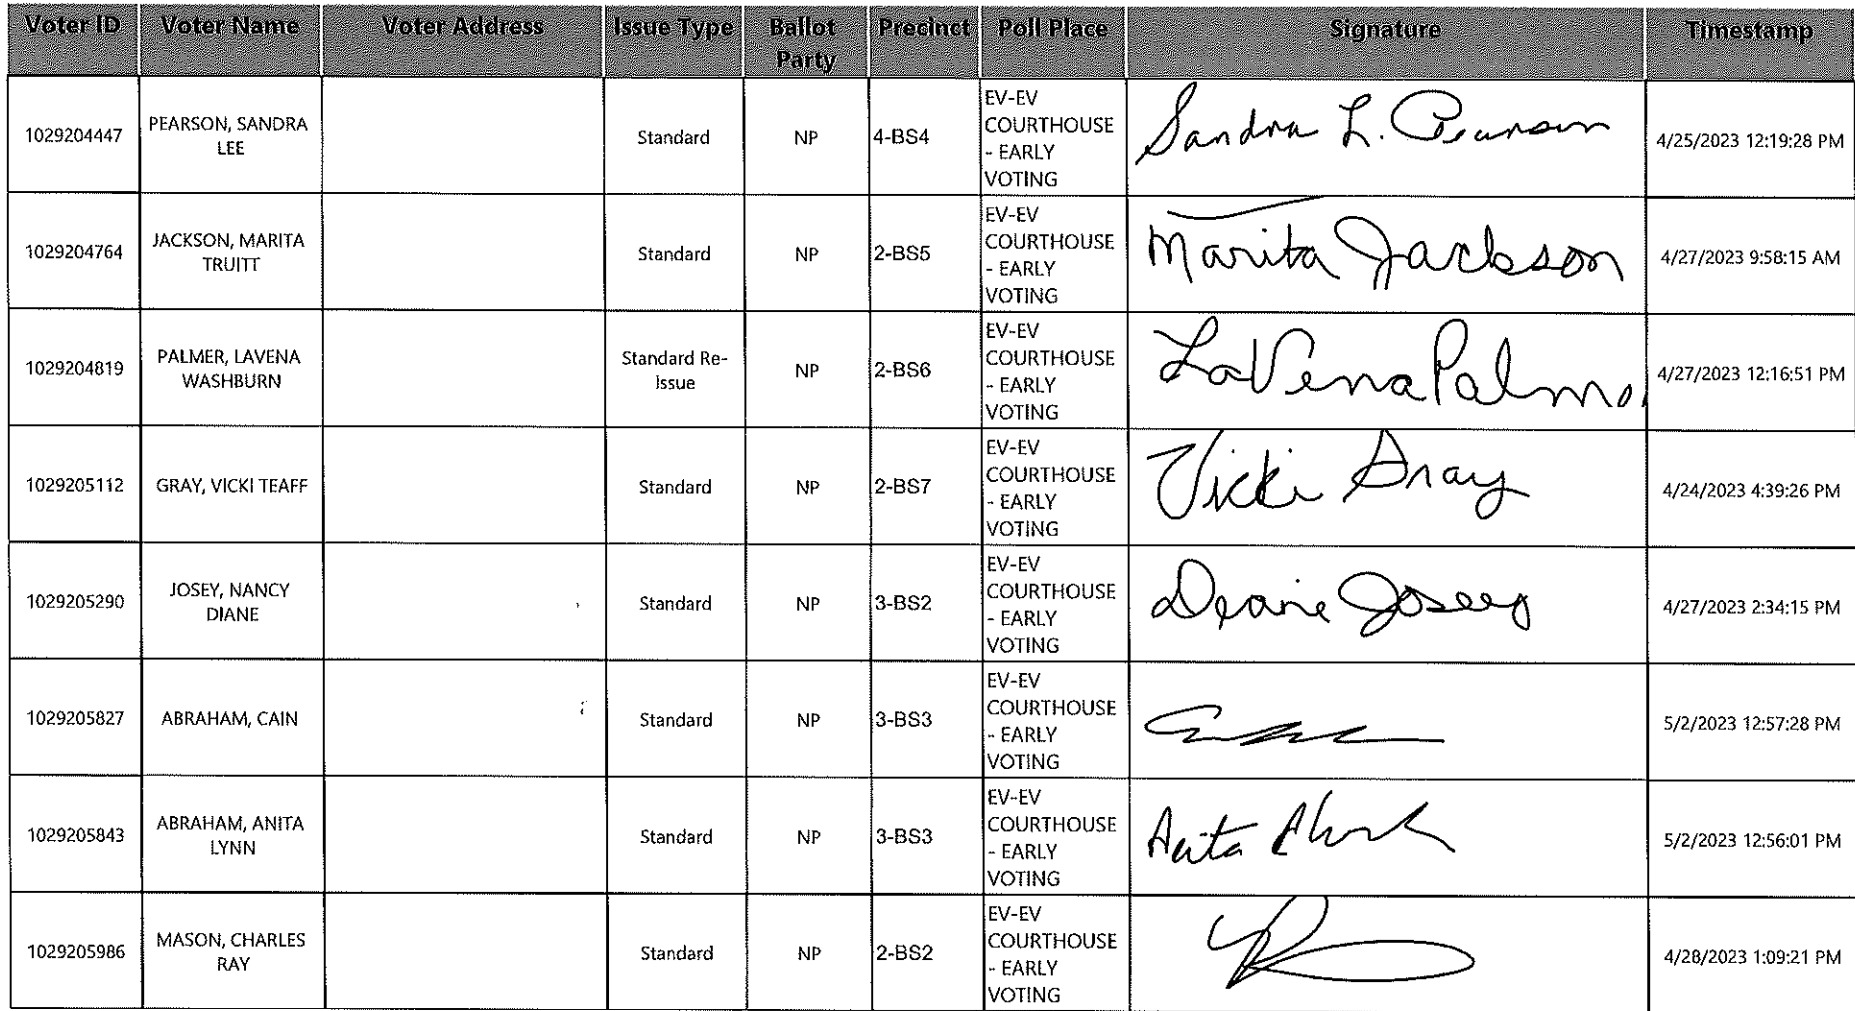 Voter ID Voter Name Voter Address Issue Type Ballot Party Precinct Poll Place Signature Timestamp
1029204447 PEARSON, SANDRA LEE Standard NP 4-BS4 EV-EV COURTHOUSE - EARLY VOTING Sandra L. Pearson 4/25/2023 12:19:28 PM
1029204764 JACKSON, MARITA TRUITT Standard NP 2-BS5 EV-EV COURTHOUSE - EARLY VOTING Marita Jackson 4/27/2023 9:58:15 AM
1029204819 PALMER, LAVENA WASHBURN Standard Re-Issue NP 2-BS6 EV-EV COURTHOUSE - EARLY VOTING LaVena Palme 4/27/2023 12:16:51 PM
1029205112 GRAY, VICKI TEAFF Standard NP 2-BS7 EV-EV COURTHOUSE - EARLY VOTING Vicki Gray 4/24/2023 4:39:26 PM
1029205290 JOSEY, NANCY DIANE Standard NP 3-BS2 EV-EV COURTHOUSE - EARLY VOTING Diane Josey 4/27/2023 2:34:15 PM
1029205827 ABRAHAM, CAIN Standard NP 3-BS3 EV-EV COURTHOUSE - EARLY VOTING 5/2/2023 12:57:28 PM
1029205843 ABRAHAM, ANITA LYNN Standard NP 3-BS3 EV-EV COURTHOUSE - EARLY VOTING Anita 5/2/2023 12:56:01 PM
1029205986 MASON, CHARLES RAY Standard NP 2-BS2 EV-EV COURTHOUSE - EARLY VOTING 4/28/2023 1:09:21 PM